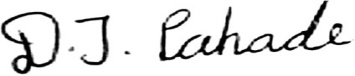 D.J. Lahade